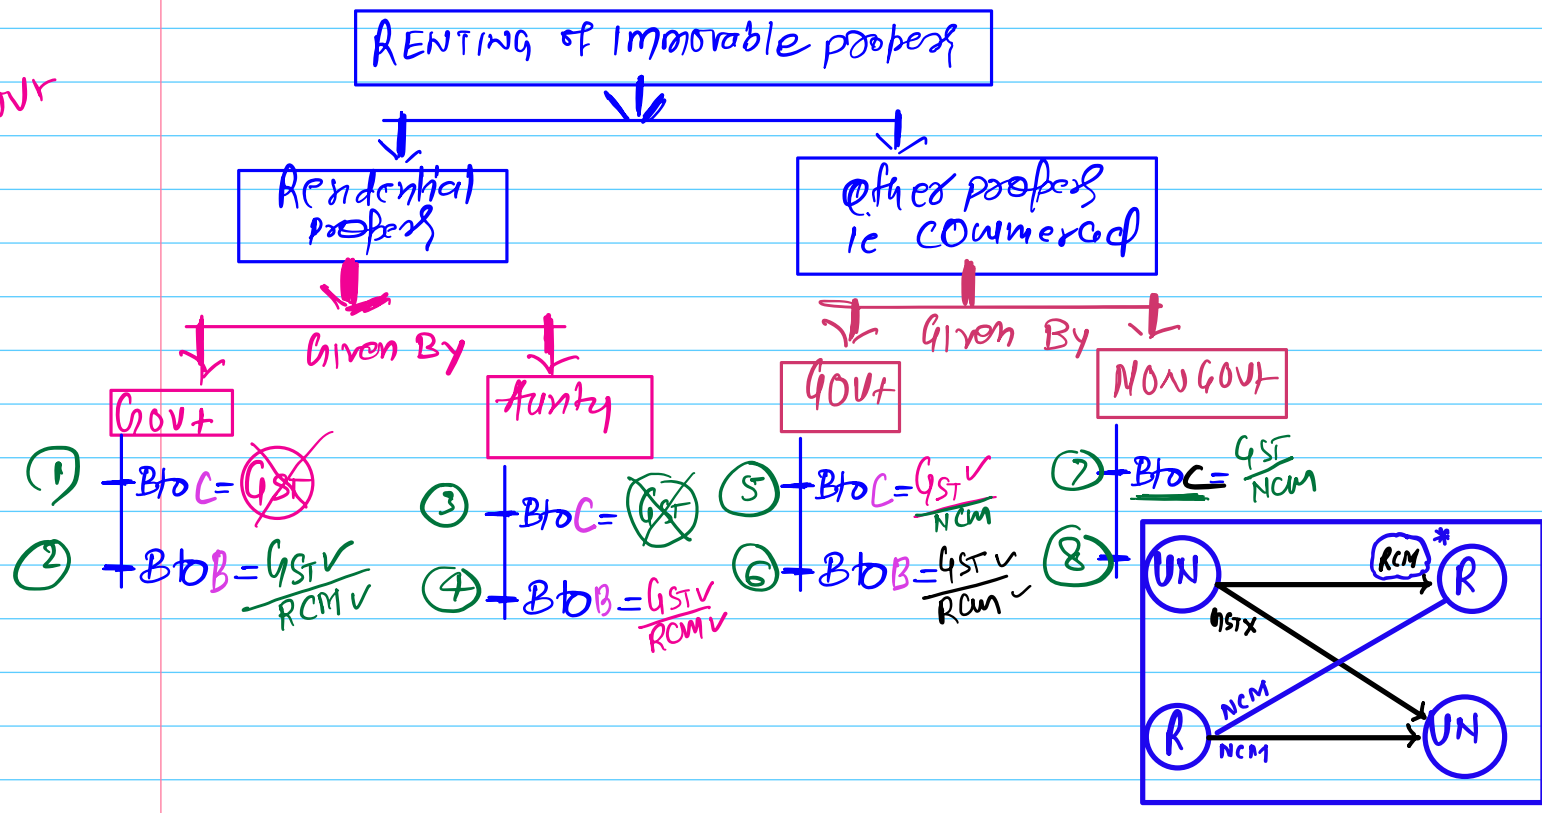 RENTING of Immovable property
ovr
Residential
property
Other property
ie commercial
Given By
Given By
Govt
Aunty
Govt
NON GOVT
① B to C = GST
② B to B = GST ✓
RCM ✓
③ B to C = GST
④ B to B = GST ✓
RCM ✓
⑤ B to C = GST ✓
NCM
⑥ B to B = GST ✓
RCM ✓
⑦ B to C = GST
NCM
⑧
UN
RCM
*
R
GST X
NCM
R
NCM
UN